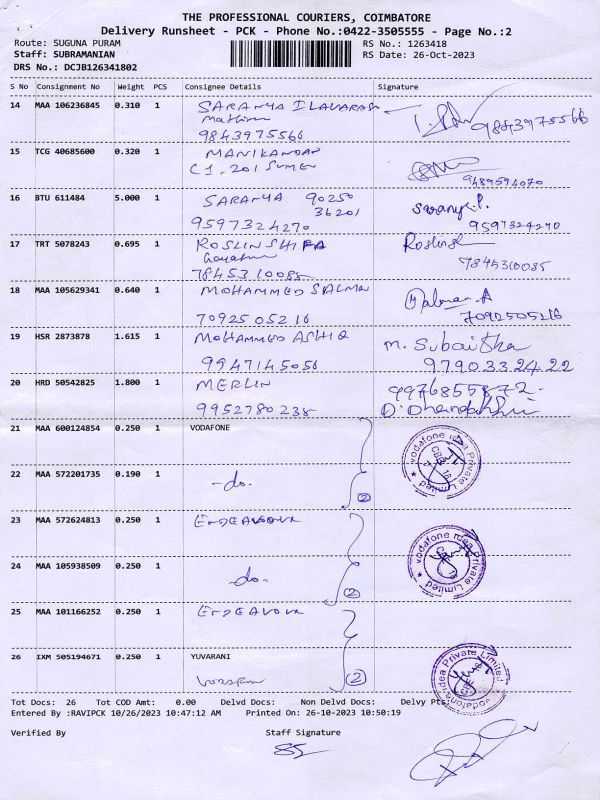 THE PROFESSIONAL COURIERS, COIMBATORE
Delivery Runsheet - PCK - Phone No.:0422-3505555 - Page No.:2
Route: SUGUNA PURAM RS No.: 1263418
Staff: SUBRAMANIAN RS Date: 26-Oct-2023
DRS No.: DCJB126341802
S No Consignment No Weight PCS Consignee Details Signature
14 MAA 106236845 0.310 1 SARANYA ILAVARASI
9843975566 9843975566
15 TCG 40685600 0.320 1 MANIKANDAN
C1, 201 9489594070
16 BTU 611484 5.000 1 SARANYA 90250 Saranya.P.
36201
9597324270 9597324270
17 TRT 5078243 0.695 1 ROSLIN SHIFA Roslin
7845310085 7845310085
18 MAA 105629341 0.640 1 MOHAMMED SALMAN
7092505216 7092505216
19 HSR 2873878 1.615 1 MOHAMMED ASHIQ M. Subaitha
9947145056 9790332422
20 HRD 50542825 1.800 1 MERLIN 9976855872.
9952780238
21 MAA 600124854 0.250 1 VODAFONE
vodafone idea Private Limited
22 MAA 572201735 0.190 1 -do. 2
23 MAA 572624813 0.250 1 ENDEAVOUR
vodafone idea Private Limited
24 MAA 105938509 0.250 1 -do. 2
25 MAA 101166252 0.250 1 ENDEAVOUR
26 IXM 505194671 0.250 1 YUVARANI
2
vodafone idea Private Limited
Tot Docs: 26 Tot COD Amt: 0.00 Delvd Docs: Non Delvd Docs: Delvy Pts:
Entered By :RAVIPCK 10/26/2023 10:47:12 AM Printed On: 26-10-2023 10:50:19
Verified By Staff Signature